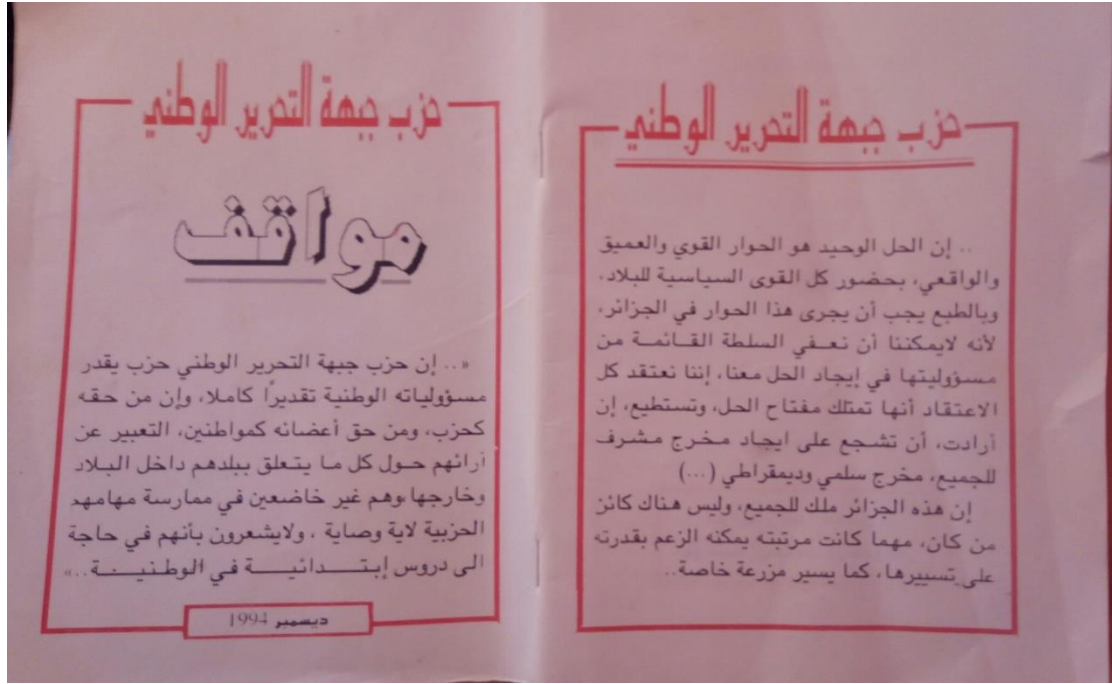 حزب جبهة التحرير الوطني
.. إن الحل الوحيد هو الحوار القوي والعميق
والواقعي، بحضور كل القوى السياسية للبلاد،
وبالطبع يجب أن يجرى هذا الحوار في الجزائر،
لأنه لايمكننا أن نعفي السلطة القائمة من
مسؤوليتها في إيجاد الحل معنا، إننا نعتقد كل
الاعتقاد أنها تمتلك مفتاح الحل، وتستطيع، إن
أرادت، أن تشجع على ايجاد مخرج مشرف
للجميع، مخرج سلمي وديمقراطي (...)
إن هذه الجزائر ملك للجميع، وليس هناك كائن
من كان، مهما كانت مرتبته يمكنه الزعم بقدرته
على تسييرها، كما يسير مزرعة خاصة..
حزب جبهة التحرير الوطني
مواقف
«.. إن حزب جبهة التحرير الوطني حزب يقدر
مسؤولياته الوطنية تقديرًا كاملا، وإن من حقه
كحزب، ومن حق أعضائه كمواطنين، التعبير عن
آرائهم حول كل ما يتعلق ببلدهم داخل البلاد
وخارجها، وهم غير خاضعين في ممارسة مهامهم
الحزبية لاية وصاية ، ولايشعرون بأنهم في حاجة
الى دروس إبتدائية في الوطنية ..»
ديسمبر 1994